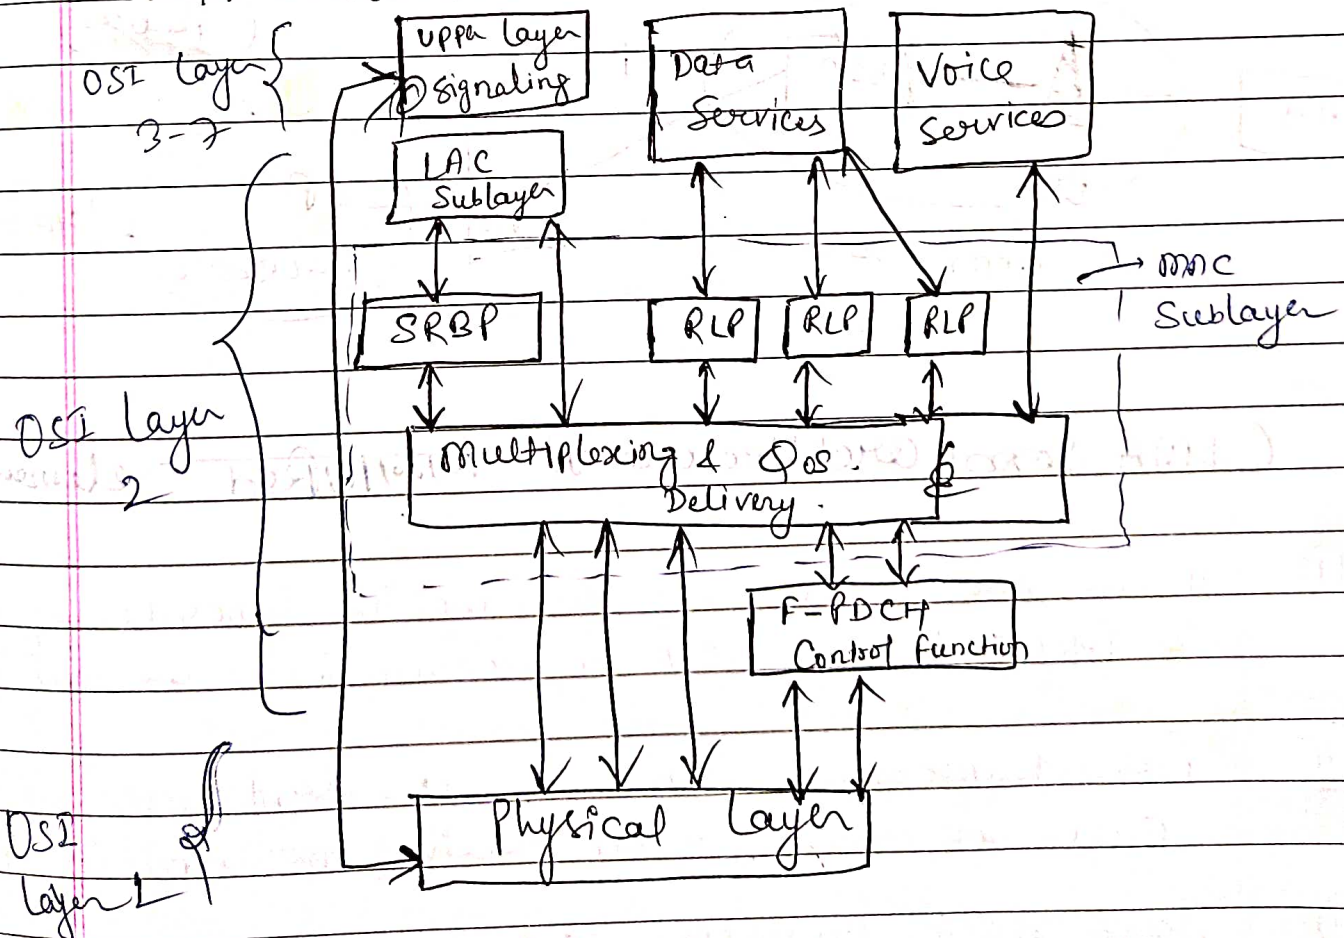 OSI Layer
3-7
Upper Layer
Signaling
Data
Services
Voice
Services
LAC
Sublayer
MAC
Sublayer
SRBP
RLP
RLP
RLP
OSI Layer
2
Multiplexing & QoS.
Delivery.
F-PDCH
Control function
Physical Layer
OSI
Layer 1